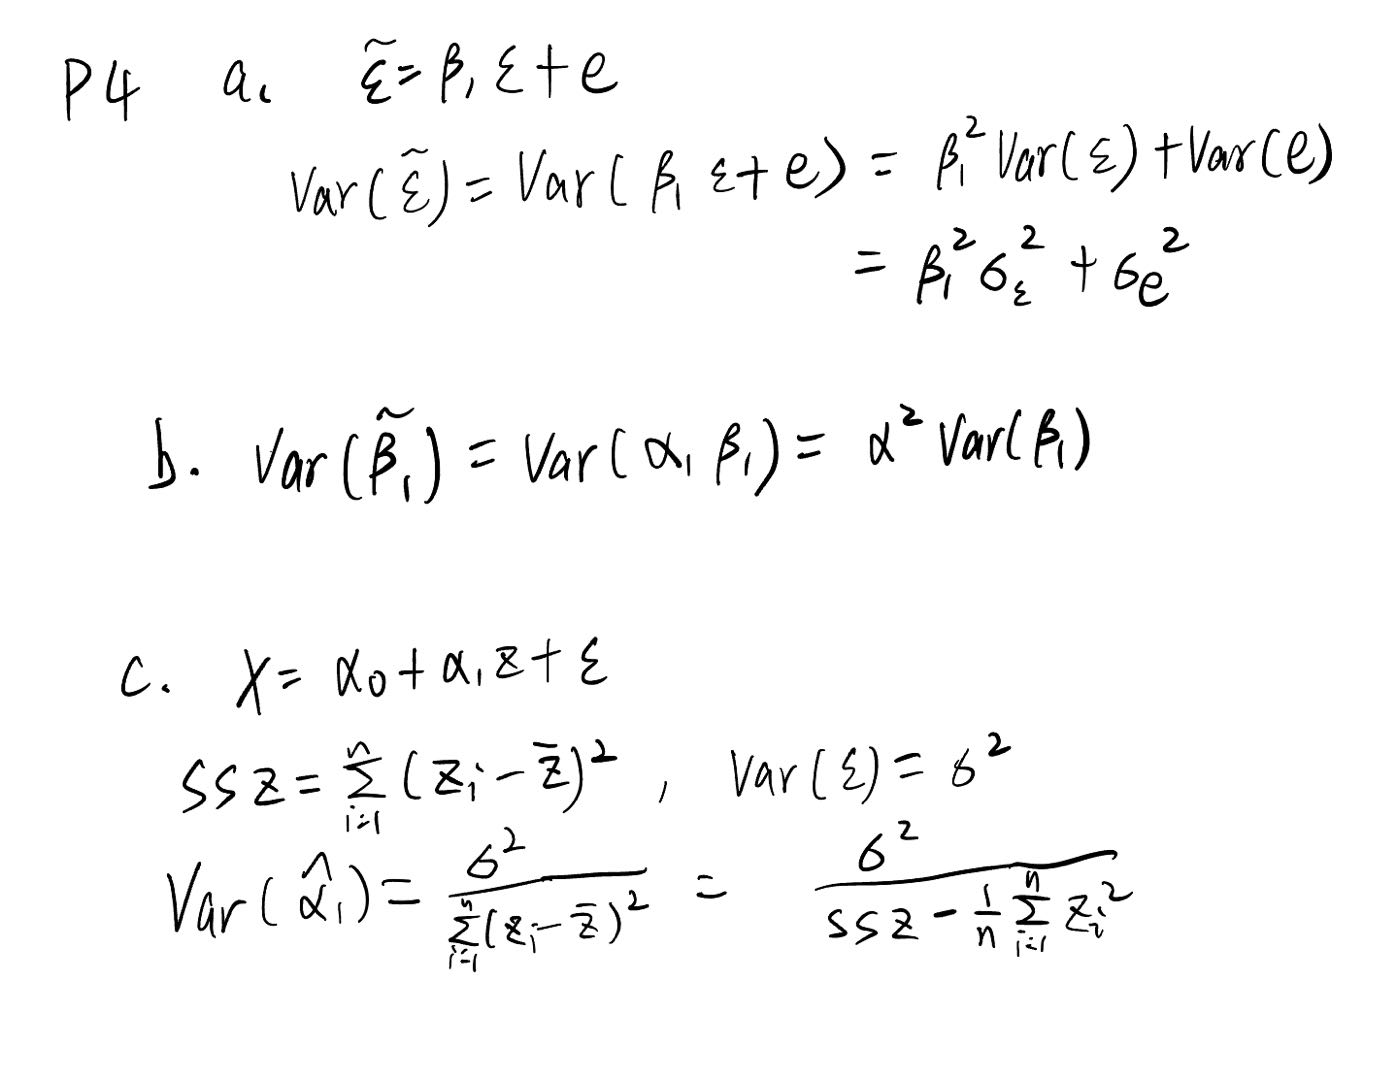 P4 a. ε̃ = β₁ ε + e
Var(ε̃) = Var(β₁ ε + e) = β₁² Var(ε) + Var(e)
= β₁² σ_ε² + σ_e²
b. Var(β̃₁) = Var(α₁ β₁) = α² Var(β₁)
c. X = α₀ + α₁ z + ε
SSZ = ∑_{i=1}^{n} (z_i − z̄)² , Var(ε) = σ²
Var(α̂₁) = σ² / ∑_{i=1}^{n} (z_i − z̄)² = σ² / (SSZ − 1/n ∑_{i=1}^{n} z_i²)